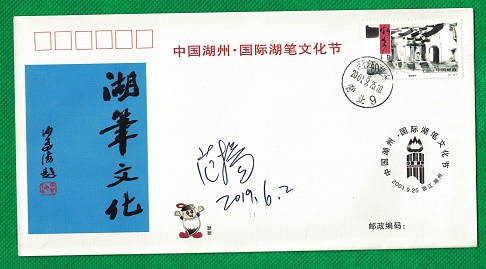 中国湖州·国际湖笔文化节
湖笔文化
沙孟海题
2001.9.25.18
9
中国邮政
范扬
2019.6.2
中国湖州·国际湖笔文化节
2001.9.25 浙江.湖州
邮政编码：